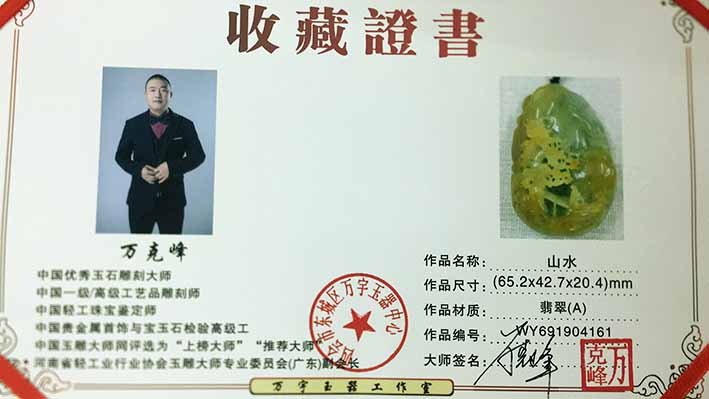 收藏證書
万克峰
中国优秀玉石雕刻大师
中国一级/高级工艺品雕刻师
中国轻工珠宝鉴定师
中国贵金属首饰与宝玉石检验高级工
中国玉雕大师网评选为“上榜大师” “推荐大师”
河南省轻工业行业协会玉雕大师专业委员会(广东)副会长
作品名称: 山水
作品尺寸: (65.2x42.7x20.4)mm
作品材质: 翡翠(A)
作品编号: WY691904161
大师签名:
万克峰
市东城区万宇玉器中心
万宇玉器工作室